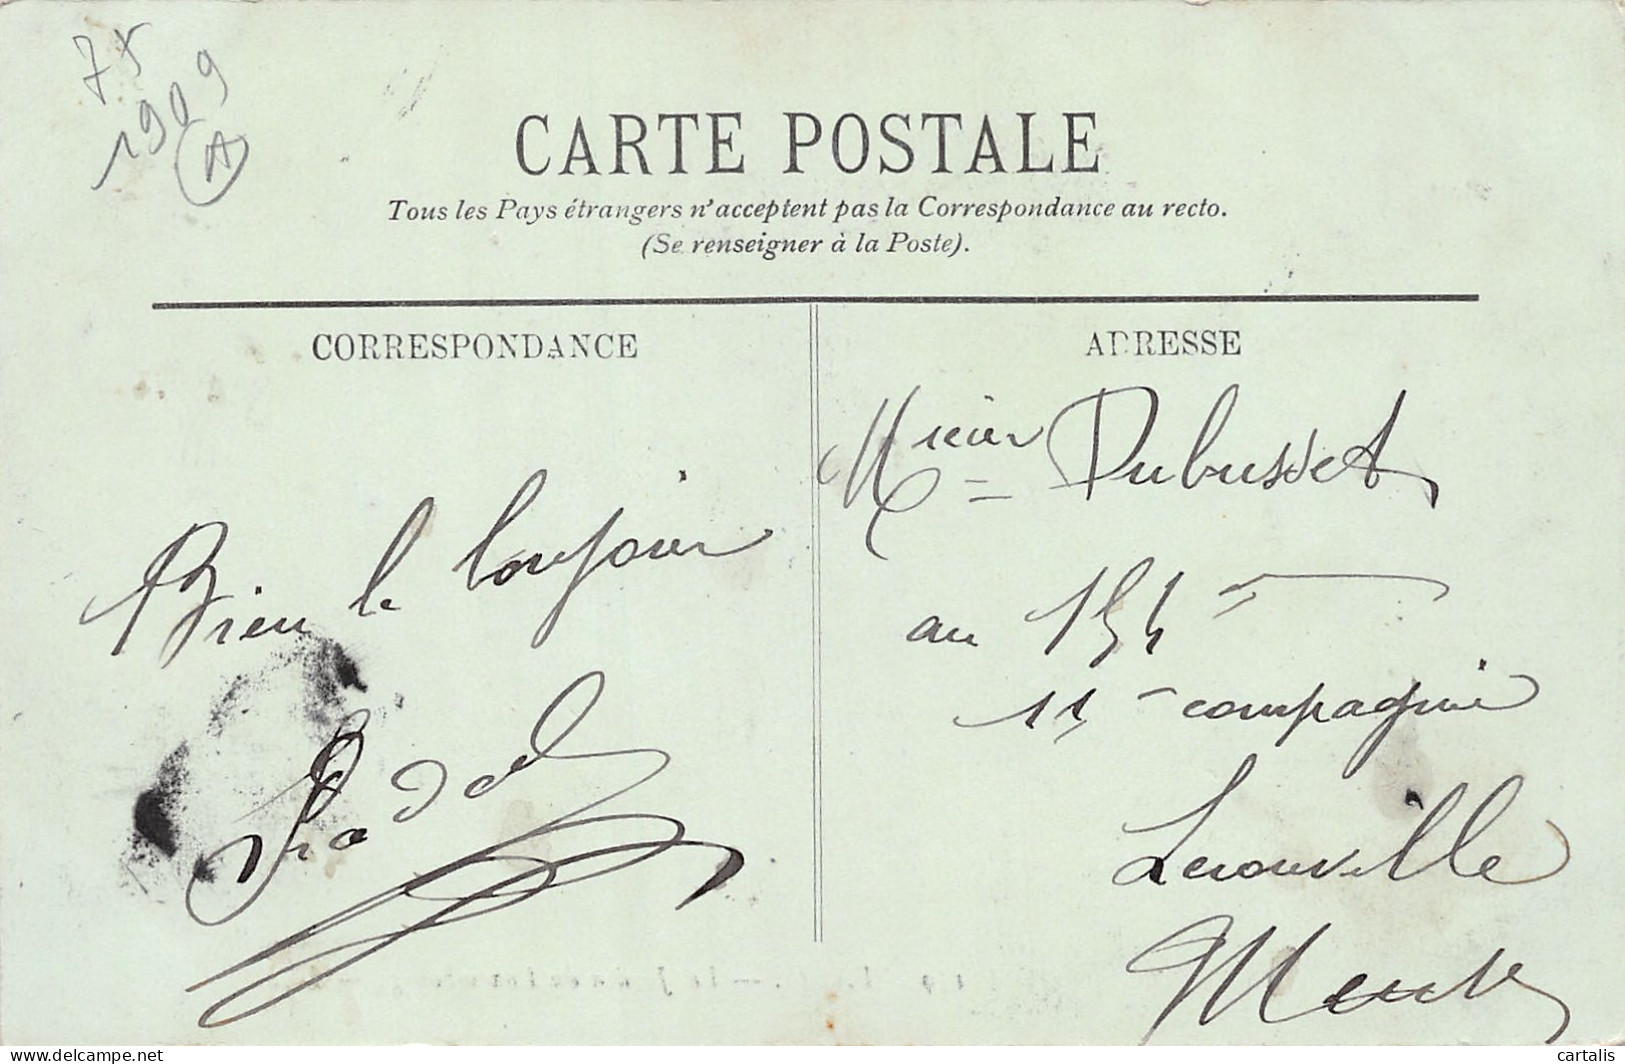 75
1909
A
CARTE POSTALE
Tous les Pays étrangers n'acceptent pas la Correspondance au recto.
(Se renseigner à la Poste).
CORRESPONDANCE
ADRESSE
Dubusset
Bien le bonjour
au 154
11 compagnie
Lerouville
Meuse
www.delcampe.net
cartalis